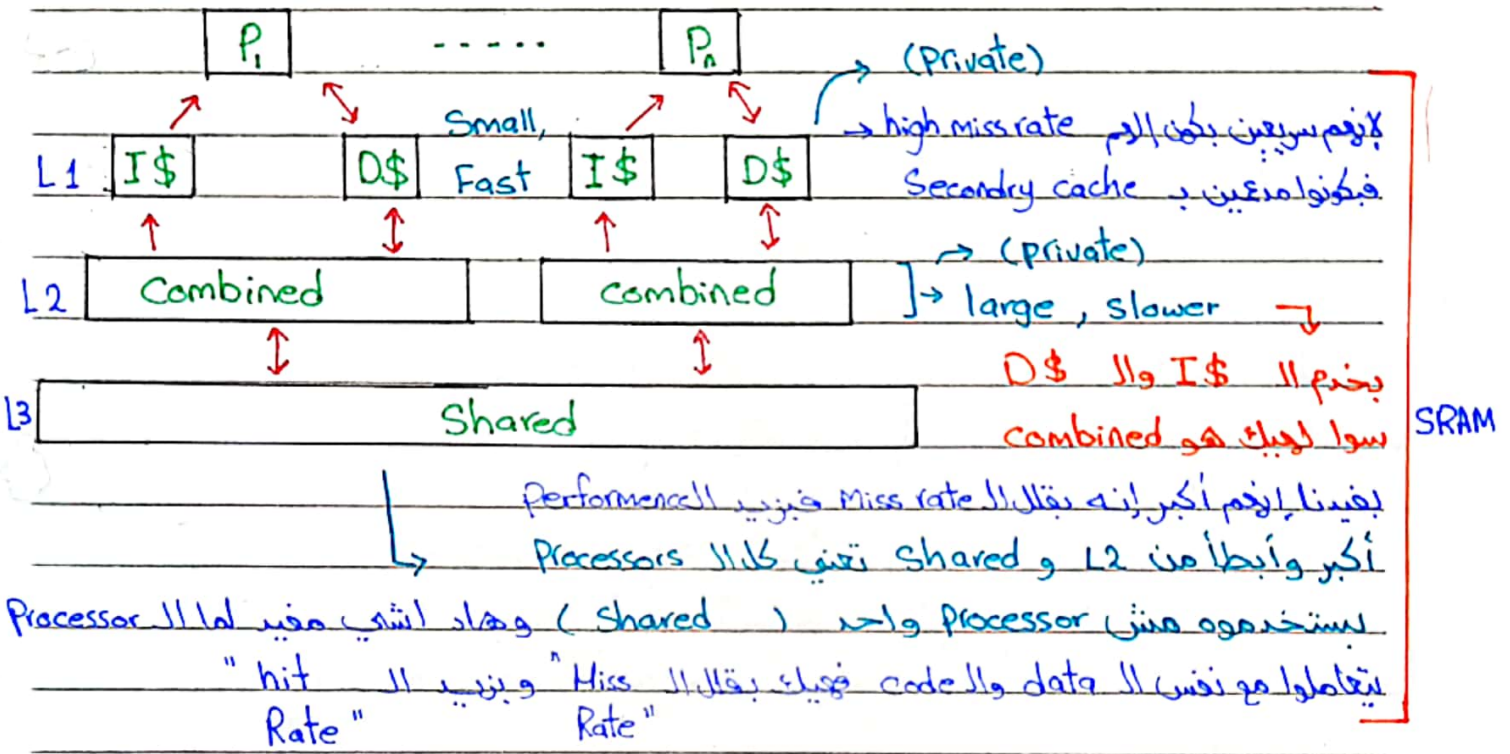 P1 ..... Pn
(Private)
Small,
Fast
→ high miss rate لانهم سريعين بكون الهم
L1 I$ D$ I$ D$
فبكونوا مدعمين ب Secondry cache
→ (private)
L2 Combined combined
→ large , slower
بخدم ال I$ وال D$
سوا لهيك هو combined
L3 Shared
SRAM
بفيدنا إنهم أكبر إنه بقلل ال Miss rate فبزيد ال Performence
أكبر وأبطأ من L2 و Shared تعني كل ال Processors
بستخدموه مش Processor واحد ( Shared ) وهاد اشي مفيد لما ال Processor
يتعاملوا مع نفس ال data وال code فهيك بقلل ال "Miss Rate" وبزيد ال "hit Rate"